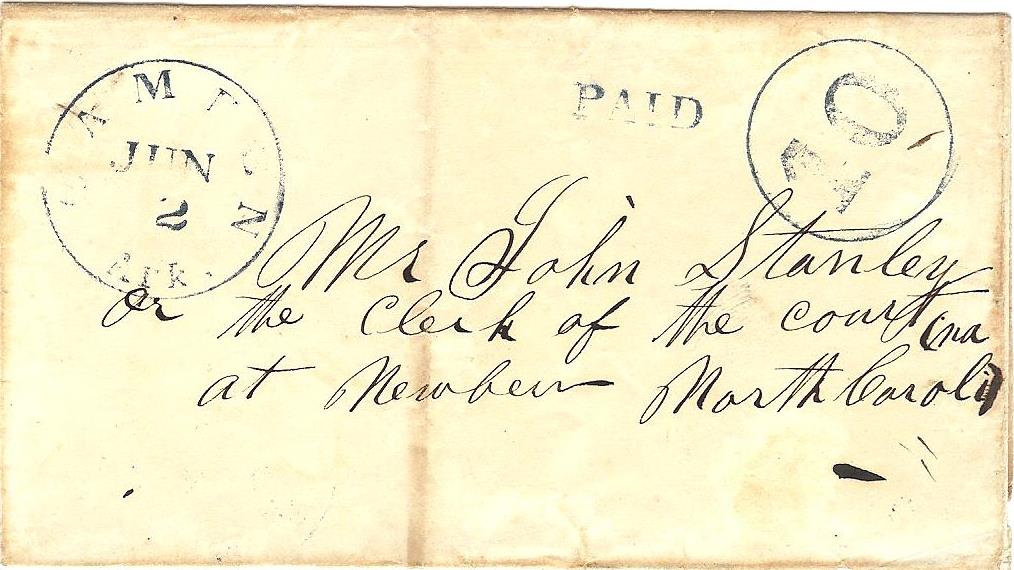 CAMDEN
JUN
2
Ark.
PAID
10
Mr John Stanley
or the Clerk of the court
at Newbern North Caroli(na